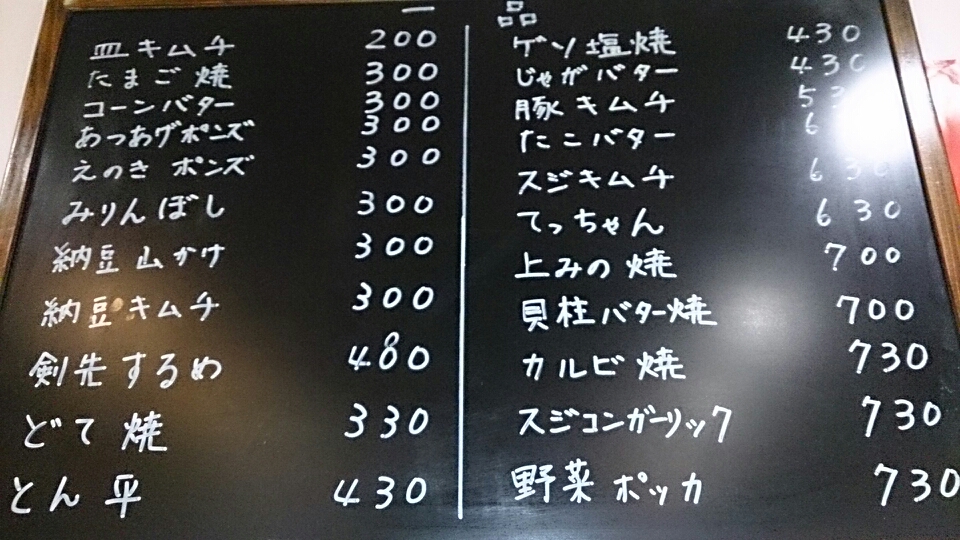 一品
皿キムチ 200
たまご焼 300
コーンバター 300
あつあげポンズ 300
えのきポンズ 300
みりんぼし 300
納豆山かけ 300
納豆キムチ 300
剣先するめ 480
どて焼 330
とん平 430
ゲソ塩焼 430
じゃがバター 430
豚キムチ 53
たこバター 6
スジキムチ 630
てっちゃん 630
上みの焼 700
貝柱バター焼 700
カルビ焼 730
スジコンガーリック 730
野菜ポッカ 730